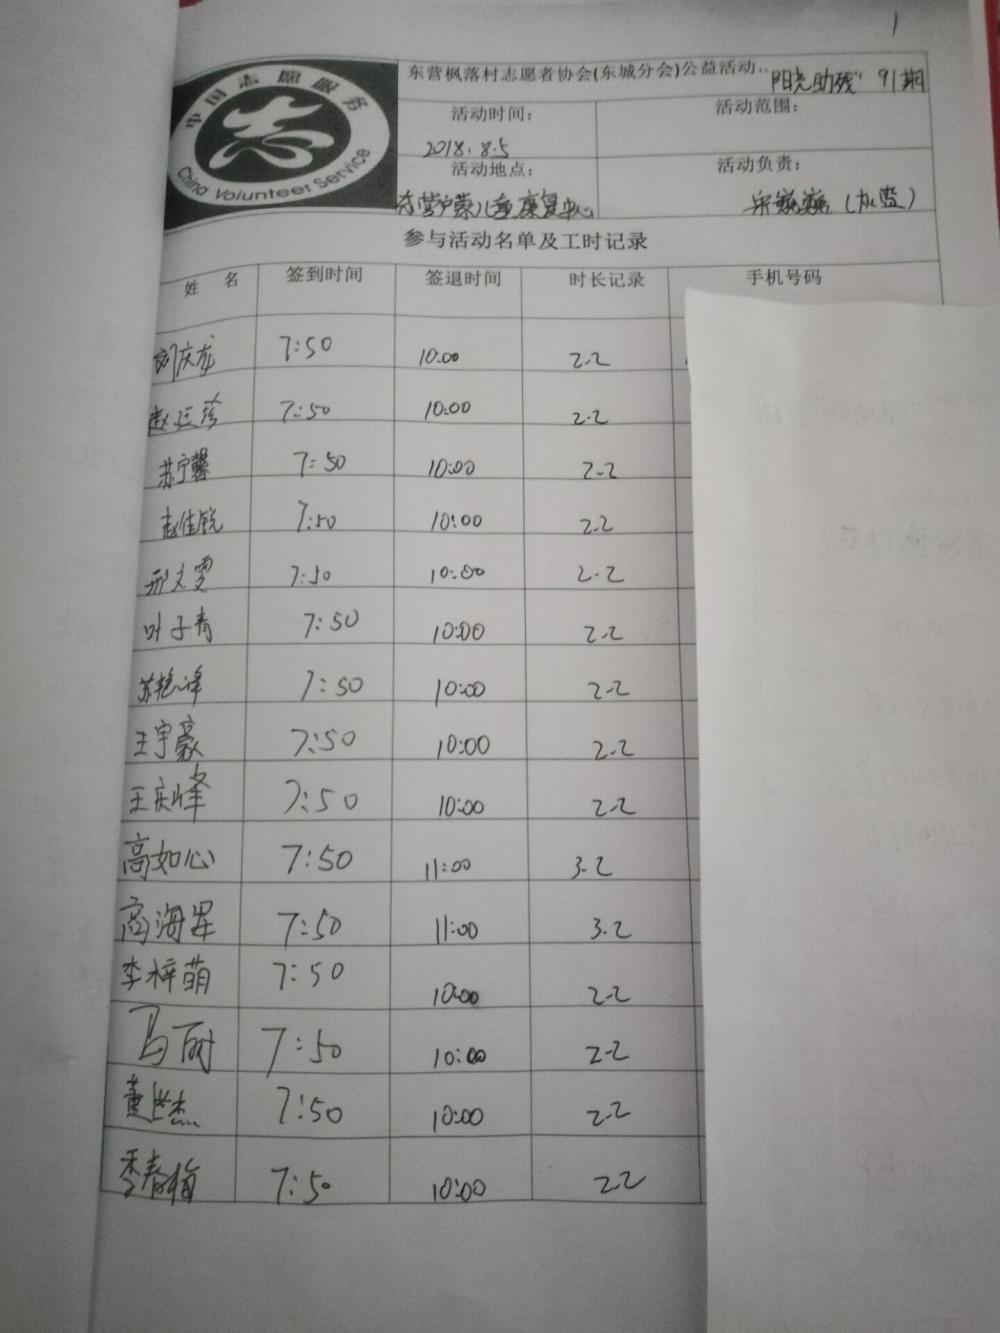 1
中国志愿服务
China Volunteer Service
东营枫落村志愿者协会(东城分会)公益活动.. 阳光助残" 91期
活动时间: 活动范围:
2018.8.5
活动地点: 活动负责:
儿童康复中心
参与活动名单及工时记录
姓 名 签到时间 签退时间 时长记录 手机号码
刘庆龙 7:50 10:00 2.2
赵廷珍 7:50 10:00 2.2
苏宁馨 7:50 10:00 2.2
赵佳锐 7:50 10:00 2.2
邢文雯 7:50 10:00 2.2
叶子青 7:50 10:00 2.2
苏艳峰 7:50 10:00 2.2
王宇豪 7:50 10:00 2.2
王庆峰 7:50 10:00 2.2
高如心 7:50 11:00 3.2
高海星 7:50 11:00 3.2
李梓萌 7:50 10:00 2.2
马丽 7:50 10:00 2.2
董世杰 7:50 10:00 2.2
季春梅 7:50 10:00 2.2